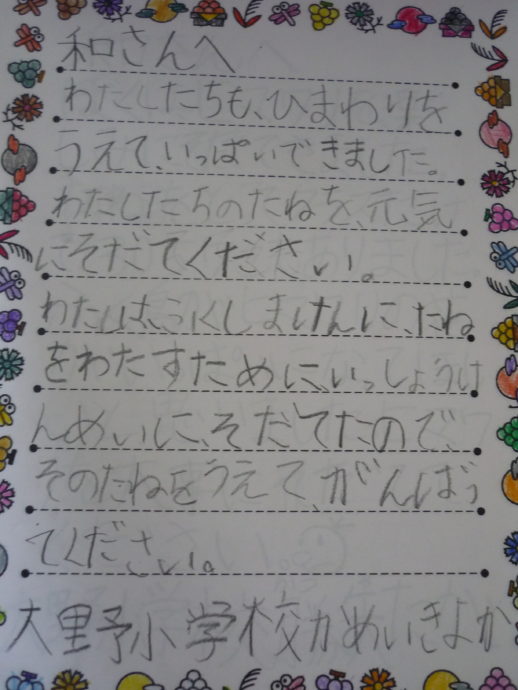 和さんへ
わたしたちも、ひまわりを
うえて、いっぱいできました。
わたしたちのたねを、元気
にそだてください。
わたしは、ふくしまけんに、たね
をわたすために、いっしょうけ
んめいに、そだてたので、
そのたねをうえて、がんばっ
てください。
大里予小学校かめいきよか